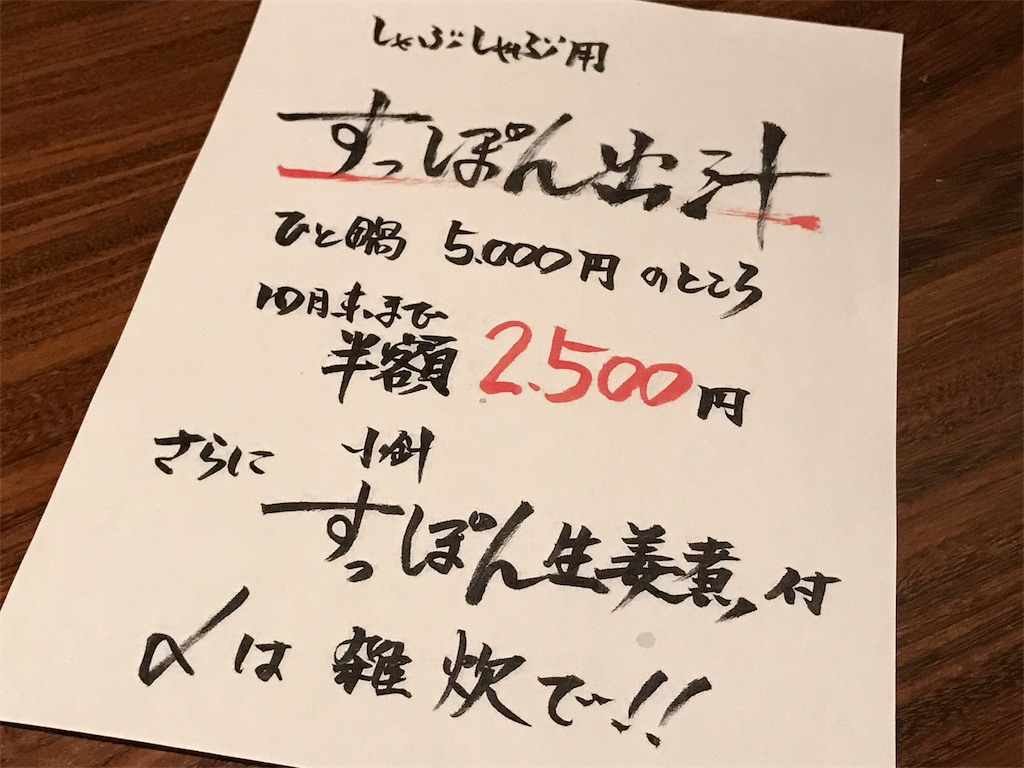 しゃぶしゃぶ用
すっぽん出汁
ひと鍋 5.000円 のところ
10月末まで
半額 2.500円
さらに 小鉢
すっぽん生姜煮付
〆は 雑炊で!!